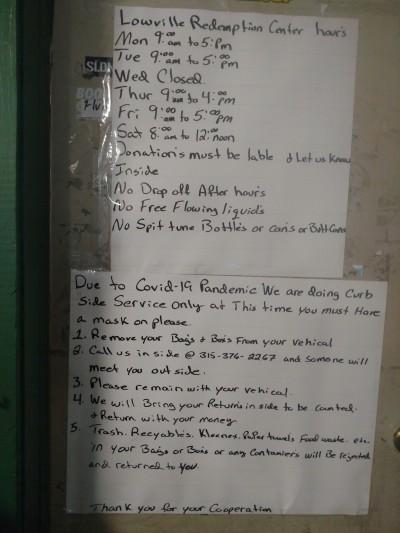 Lowville Redemption Center hours
Mon 9:00 am to 5:pm
Tue 9:00 am to 5:00 pm
Wed Closed
Thur 9:00 am to 4:00 pm
Fri 9:00 am to 5:00 pm
Sat 8:00 am to 12:00 noon
Donation's must be lable & Let us Know
Inside
No Drop off After hours
No Free Flowing liquids
No Spit tune Bottles or cans or Butt Cans
Due to Covid-19 Pandemic We are doing Curb
Side Service only at This time you must Have
a mask on please
1. Remove your Bags & Boxs From your vehical
2. Call us in side @ 315-376-2267 and Someone will
meet you outside.
3. Please remain with your vehical.
4. We will Bring your Returns in side to be counted.
& Return with your money
5. Trash. Recyables. Kleenex. Paper towels Food waste. etc.
in your Bags or Boxs or any Contaniers will Be rejected
and returned to you.
Thank you for your Cooperation